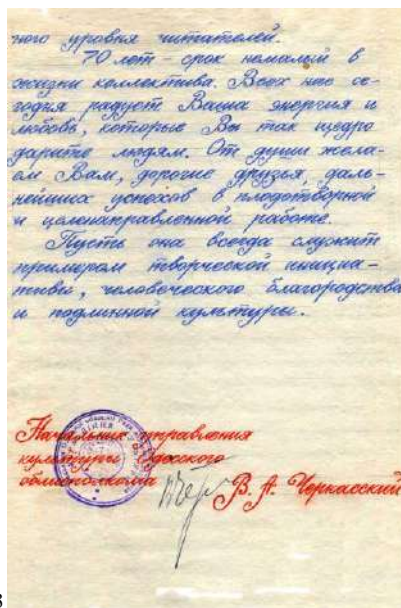 ного уровня читателей.
70 лет – срок немалый в
жизни коллектива. Всех нас се-
годня радует Ваша энергия и
любовь, которые Вы так щедро
дарите людям. От души жела-
ем Вам, дорогие друзья, даль-
нейших успехов в плодотворной
и целенаправленной работе.
Пусть она всегда служит
примером творческой инициа-
тивы, человеческого благородства
и подлинной культуры.
Начальник управления
культуры Одесского
облисполкома
В. А. Черкасский